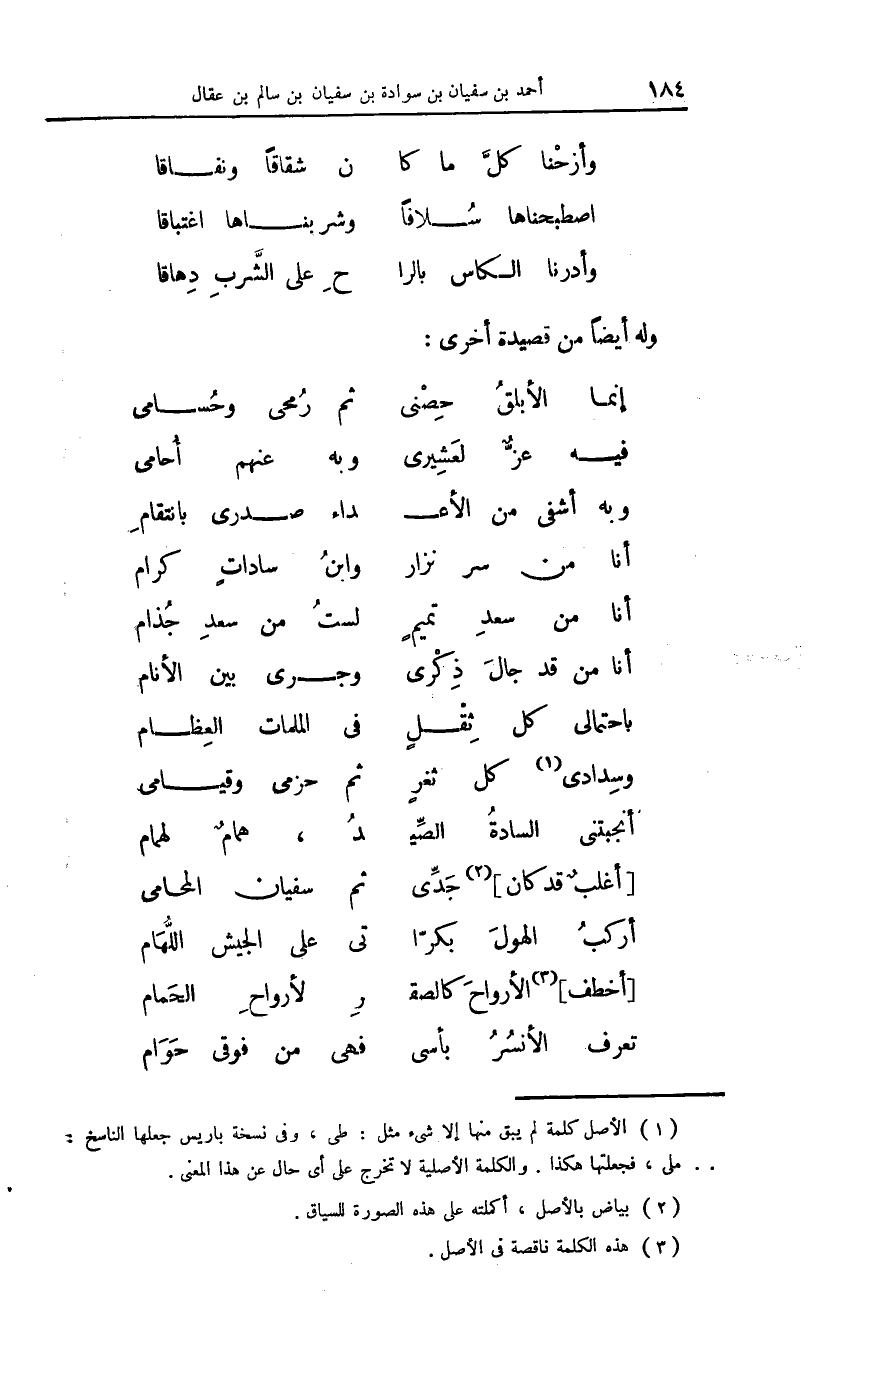 ١٨٤ أحمد بن سفيان بن سوادة بن سفيان بن سالم بن عقال
وأزحْنا كلَّ ما كا ن شقاقاً ونفـــاقا
اصطبحناها سُــلافاً وشربنـــاها اغتباقا
وأدرنا الـكاس بالرا حِ على الشَّربِ دِهاقا
وله أيضاً من قصيدة أخرى :
إنمـا الأبلقُ حِصْنى ثم رُمحى وحُســامى
فيــه عزٌّ لعَشِيرى وبه عنهم أُحامى
وبه أشفى من الأعـ ـداء صــدرى بانتقامِ
أنا من سر نزار وابنُ ساداتٍ كرام
أنا من سعدِ تميمٍ لستُ من سعدِ جُذام
أنا من قد جالَ ذِكْرى وجــرى بين الأنام
باحتمالى كل ثِقْــلٍ فى الملمات العِظــام
وسِدادى(١) كل ثغرٍ ثم حزمى وقيــامى
أنجبتنى السادةُ الصِّيـ ـدُ ، همامٌ لهمام
[أغلبٌ قد كان](٢) جَدِّى ثم سفيان المحامى
أركبُ الهولَ بكرّا تى على الجيش اللُّهَام
[أخطف](٣) الأرواحَ كالصقـ ـرِ لأرواحِ الحَمام
تعرف الأنسُرُ بأسى فهى من فوقى حَوَام
(١) الأصل كلمة لم يبق منها إلا شىء مثل : طى ، وفى نسخة باريس جعلها الناسخ :
. . ملى ، فجعلتها هكذا . والكلمة الأصلية لا تخرج على أى حال عن هذا المعنى .
(٢) بياض بالأصل ، أكملته على هذه الصورة للسياق .
(٣) هذه الكلمة ناقصة فى الأصل .